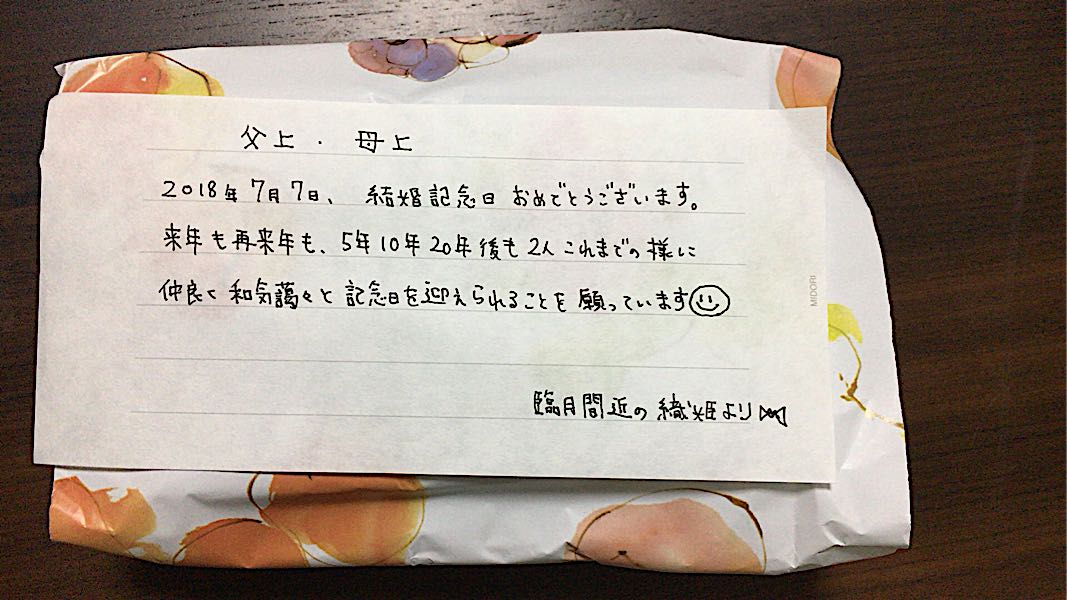 父上・母上
2018年7月7日、結婚記念日おめでとうございます。
来年も再来年も、5年10年20年後も2人これまでの様に
仲良く和気藹々と記念日を迎えられることを願っています
臨月間近の織姫より
MIDORI